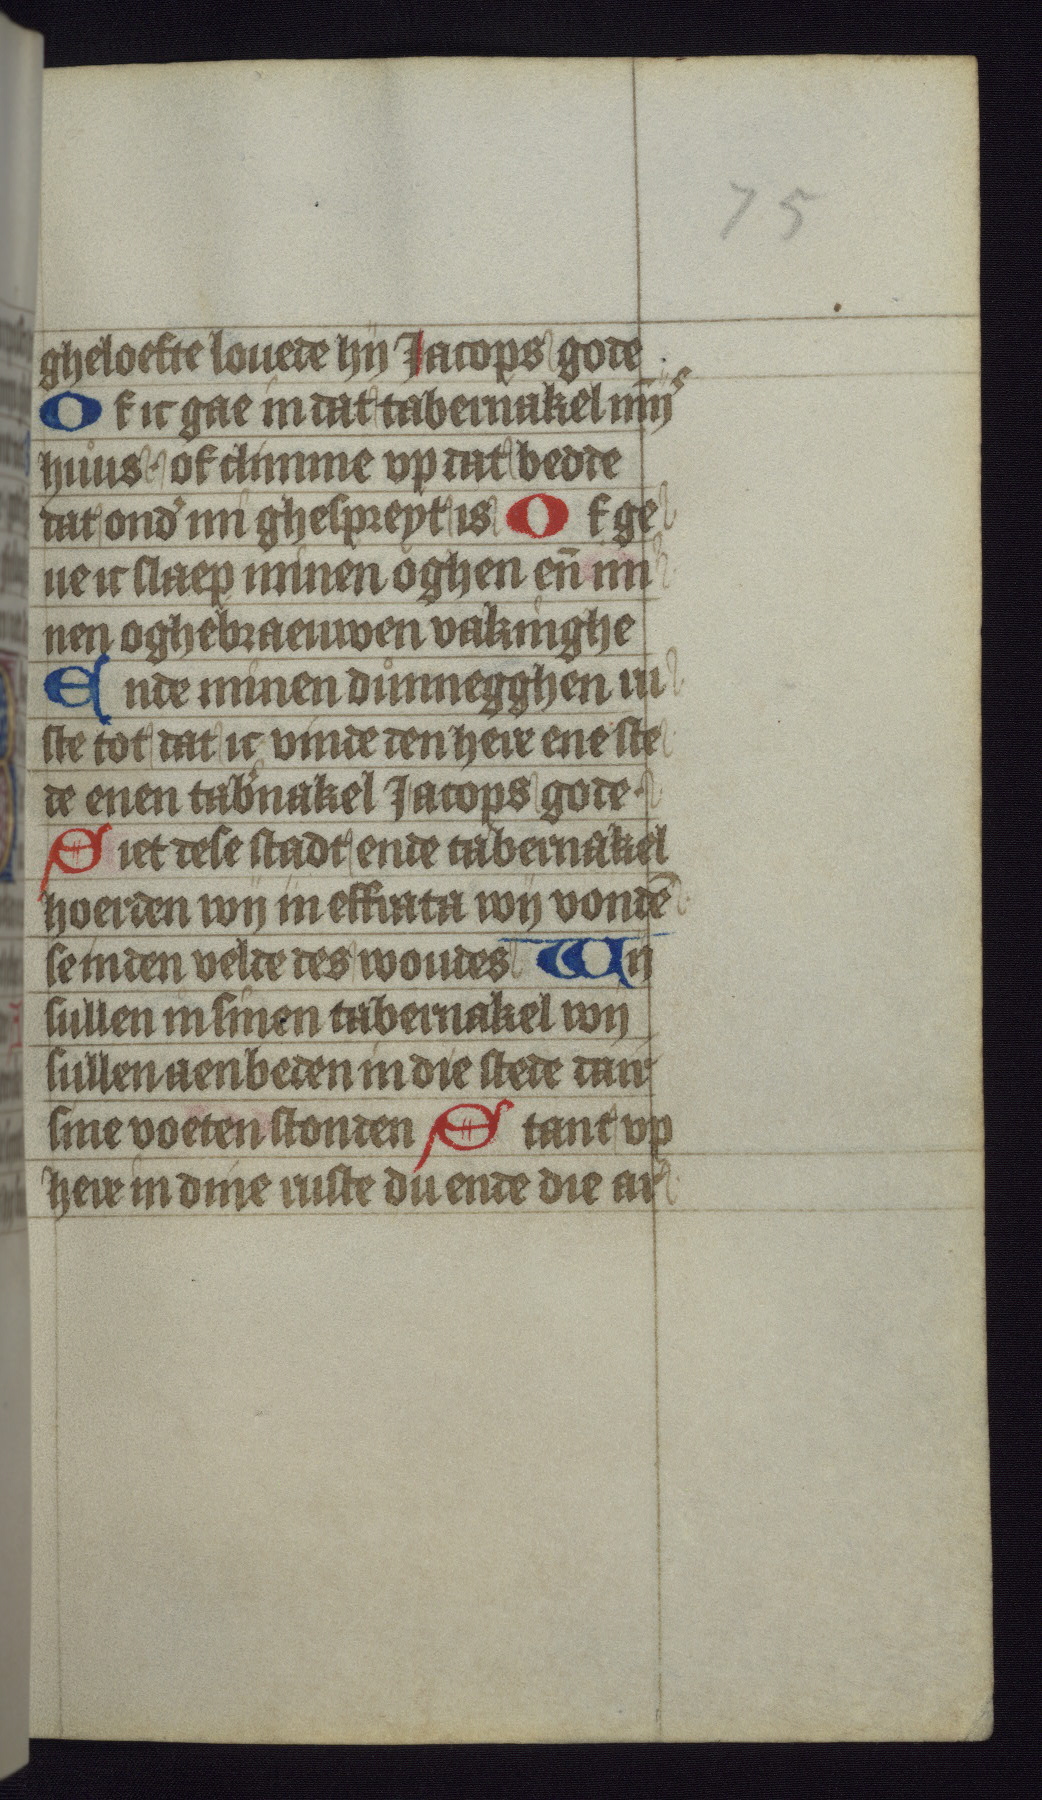 75
gheloefte louede hij Jacops gode
Of ic gae in dat tabernakel mijs
huus · of climme vp dat bedde
dat ond' mi ghespreyt is Of ge
ue ic slaep minen oghen en̄ mi
nen oghebraeuwen vakinghe
Ende minen dunnegghen ru
ste tot dat ic vinde den here ene ste
de enen tab'nakel Jacops gode ·
Siet dese stadt ende tabernakel
hoerden wij in effrata wij vondē
se in den velde des woudes Wij
sullen in sinen tabernakel wij
sullen aenbeden in die stede daer
sine voeten stonden Stant vp
here in dine ruste du ende die ar